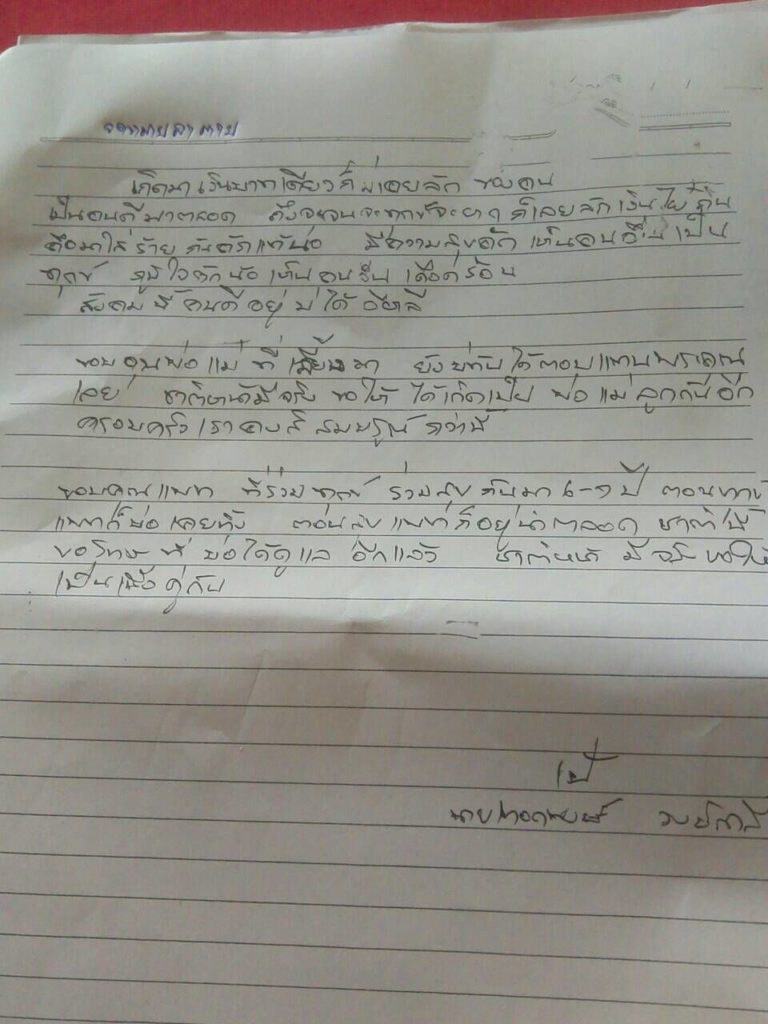 จดหมายลาตาย
เกิดมาเงินบาทเดียวก็บ่เคยลัก ของคน
เป็นคนดีมาตลอด ถึงจะจนจะทุกข์จะยาก ก็บ่เคยลักเงินไผกิน
คือมาใส่ร้ายกันคักแท้น้อ มีความสุขคัก เห็นคนอื่นเป็น
ทุกข์ ภูมิใจคักน้อ เห็นคนอื่น เดือดร้อน
สังคมนี้ คนดีอยู่บ่ได้ อีหลี
ขอบคุณพ่อแม่ ที่เลี้ยงมา ยังบ่ทันได้ตอบแทนพระคุณ
เลย ชาติหน้ามีจริง ขอให้ ได้เกิดเป็น พ่อ แม่ ลูกกันอีก
ครอบครัวเรา สมบูรณ์ กว่านี้
ขอบคุณแพท ที่ร่วมทุกข์ ร่วมสุข กันมา ๖-๗ ปี ตอนทุกข์
แพทก็บ่เคยทิ้ง ตอนสุข แพทก็อยู่นำตลอด ชาตินี้
ขอโทษที่ บ่ได้ดูแล อีกแล้ว ชาติหน้า มีจริง ขอให้
เป็นเนื้อคู่กัน
เป้
นาย